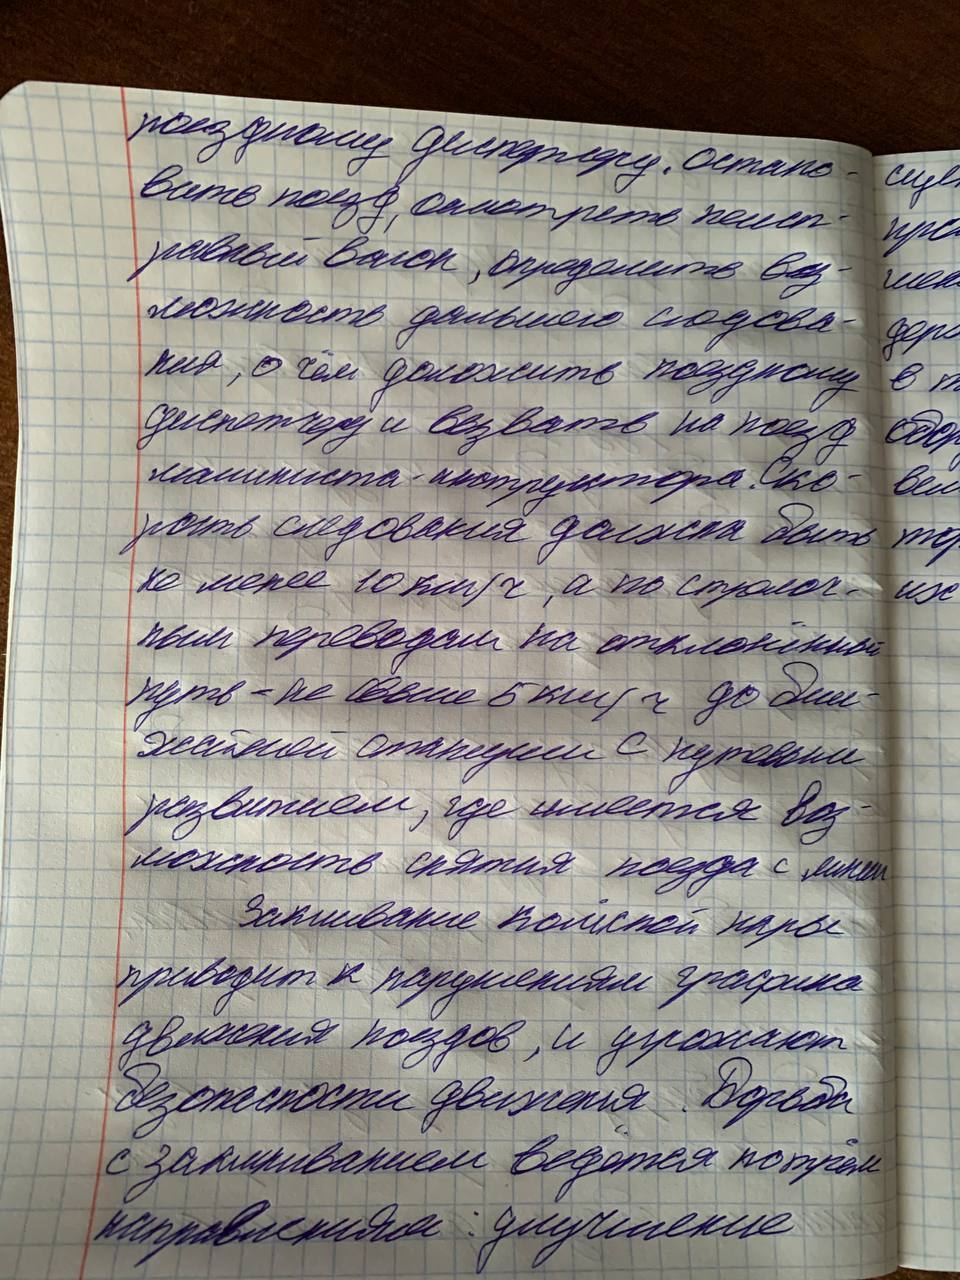 поездному диспетчеру. Остано-
вить поезд, осмотреть неисп-
равный вагон, определить воз-
можность дальшего следова-
ния, о чём доложить поездному
диспетчеру и вызвать на поезд
машиниста-инструктора. Ско-
рость следования должна быть
не менее 10 км/ч, а по стрелоч-
ным переводам на отклонённый
путь - не свыше 5 км/ч до бли-
жайшей станции с путевым
развитием, где имеется воз-
можность снятия поезда с линии
Заклинивание колёсной пары
приводит к нарушениям графика
движения поездов, и угрожают
безопасности движения. Борьба
с заклиниванием ведётся по трём
направлениям: улучшение
в
их